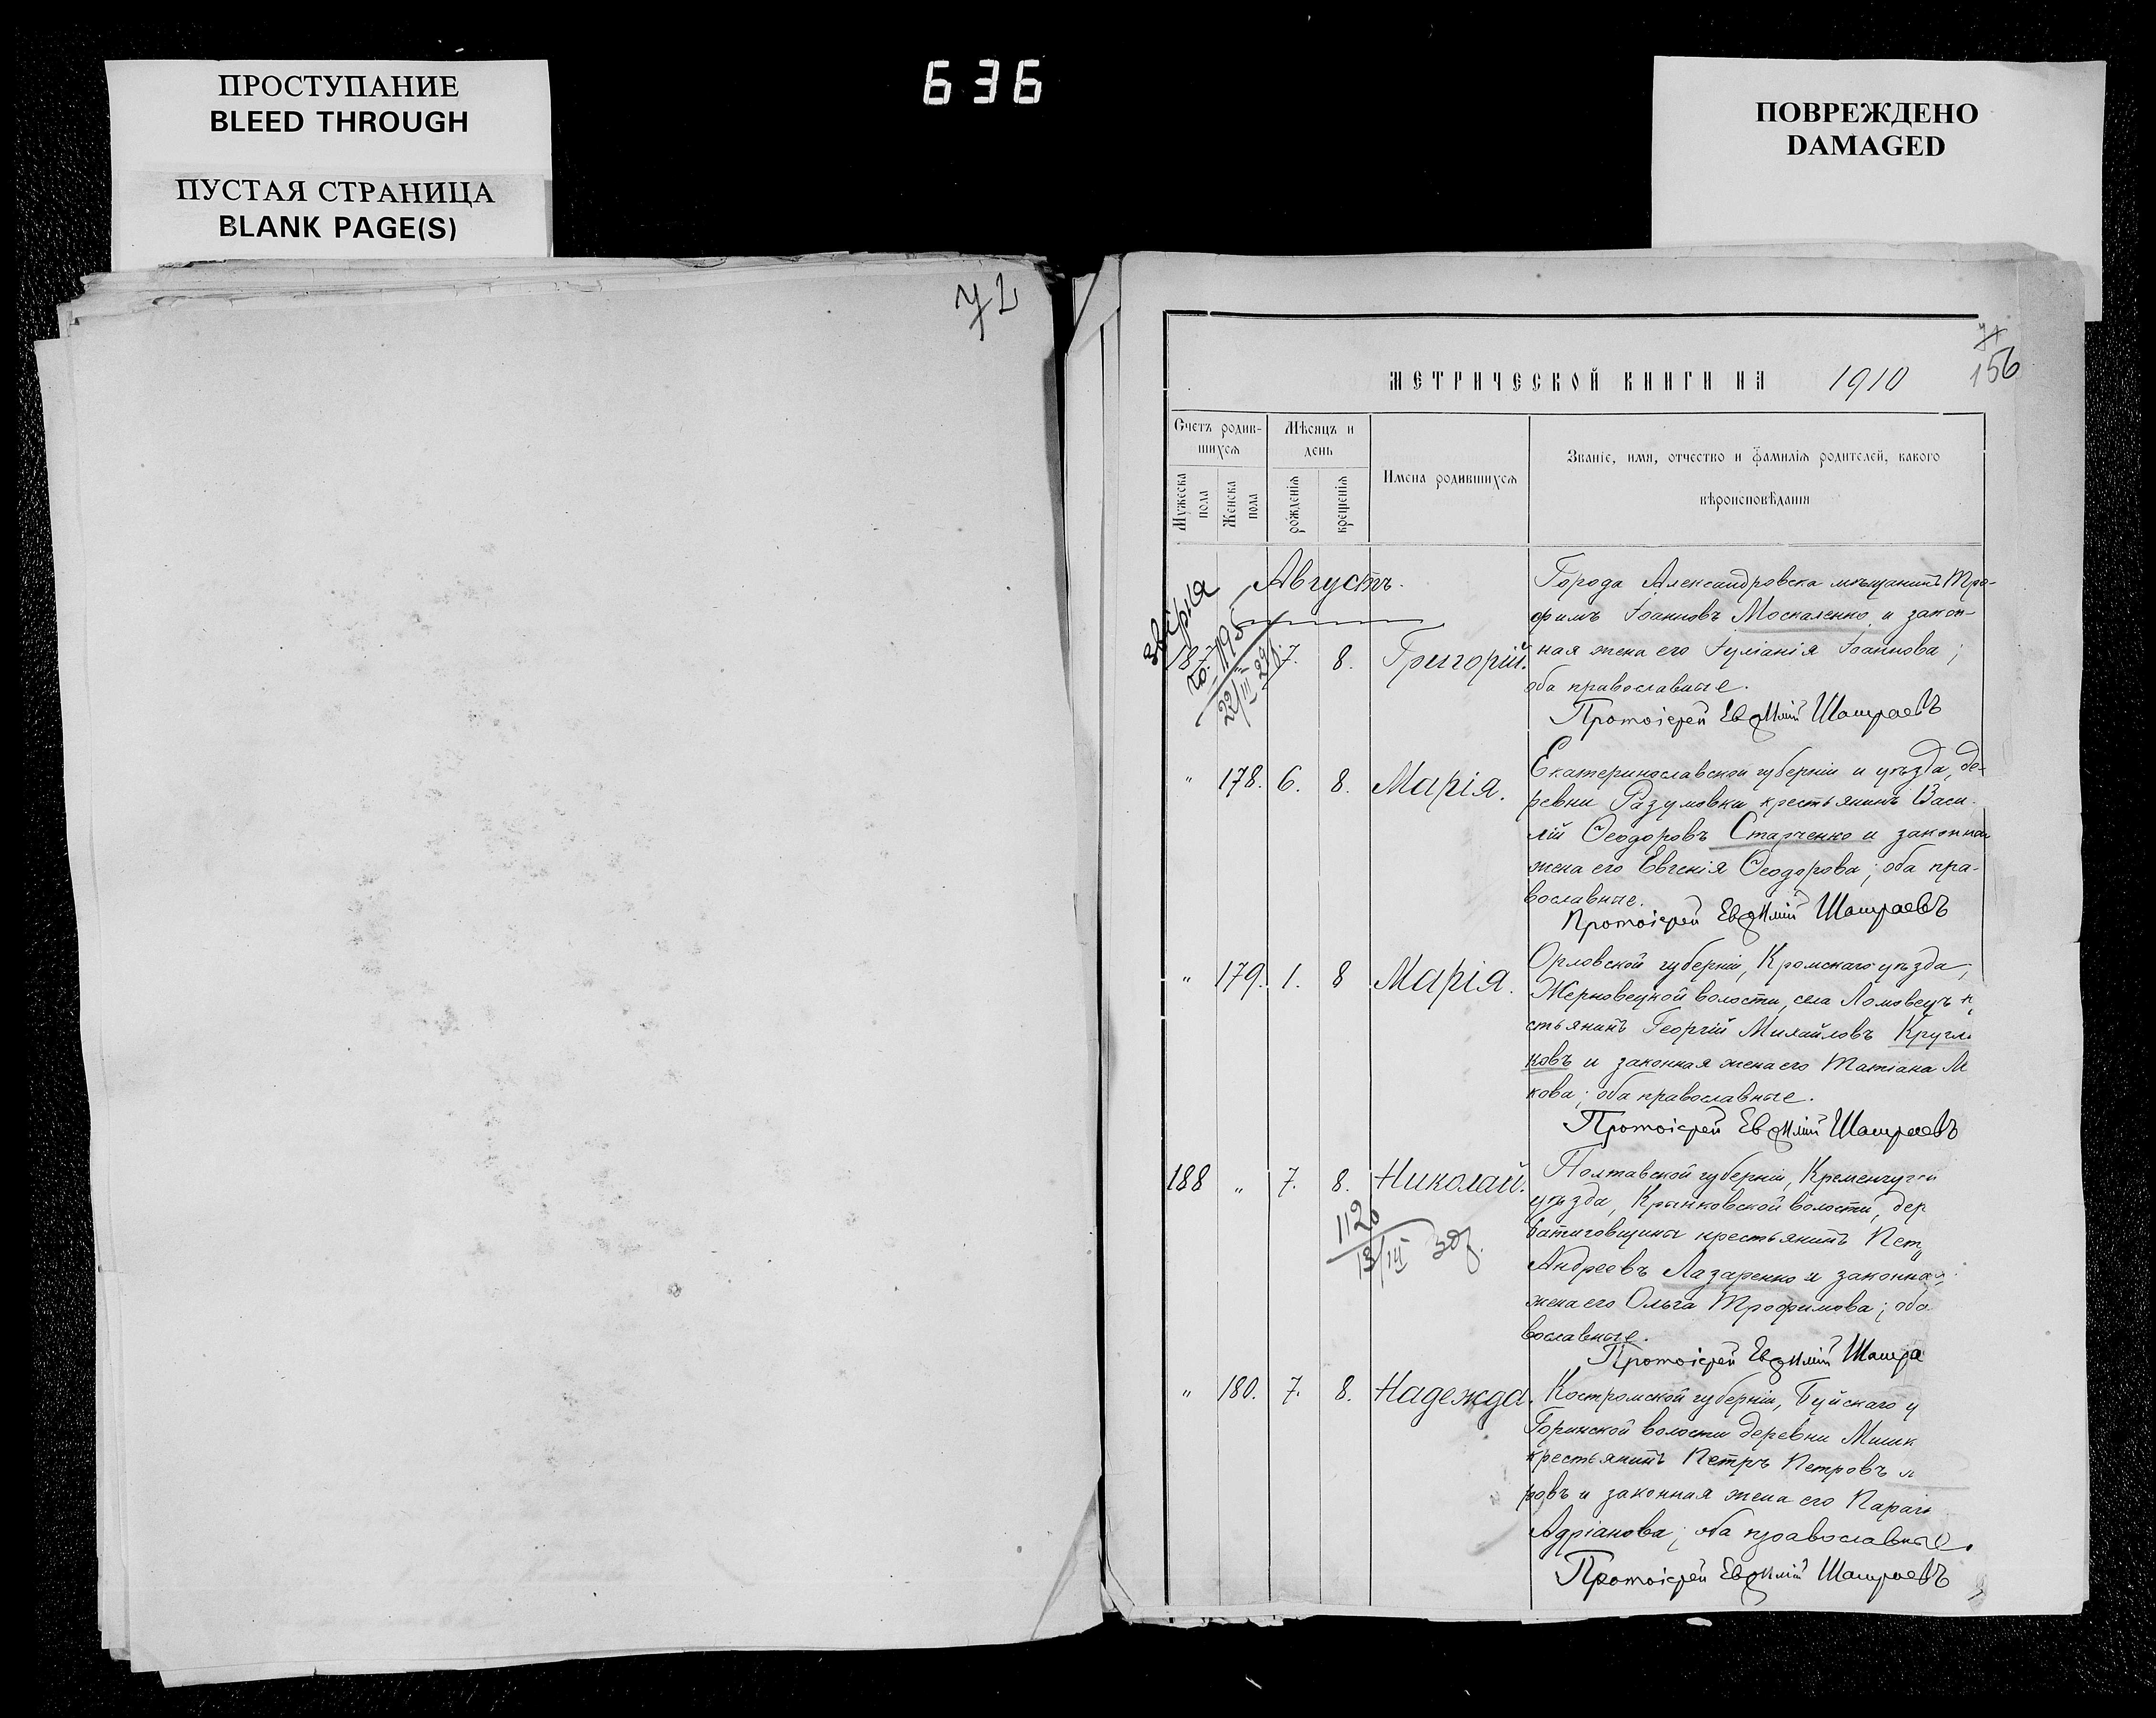 636
ПРОСТУПАНИЕ
BLEED THROUGH
ПУСТАЯ СТРАНИЦА
BLANK PAGE(S)
ПОВРЕЖДЕНО
DAMAGED
72
156
МЕТРИЧЕСКОЙ КНИГИ НА 1910
Счетъ родив-
шихся
Мужеска
пола
Женска
пола
Мѣсяцъ и
день
рожденія
крещенія
Имена родившихся
Званіе, имя, отчество и фамилія родителей, какого
вѣроисповѣданія
Августъ.
7. 8. Григорій.
Города Александровска мѣщанинъ Тро-
фимъ Іоанновъ Москаленко и закон-
ная жена его Іуліанія Іоаннова;
оба православные.
Протоіерей Евѳимій
" 178. 6. 8. Марія.
Екатеринославской губерніи и уѣзда, де-
ревни Разумовки крестьянинъ Васи-
лій Ѳеодоровъ Старченко и законная
жена его Евгенія Ѳеодорова; оба пра-
вославные.
Протоіерей Евѳимій
" 179. 1. 8 Марія.
Орловской губерніи, Кромскаго уѣзда,
Жерновецкой волости, села Ломовецъ к
стьянинъ Георгій Михайловъ Кругли
ковъ и законная жена его Татіана М
кова; оба православные.
Протоіерей Евѳимій
188 " 7. 8. Николай.
1120
13/III 30г.
Полтавской губерніи, Кременчугск
уѣзда, Крынковской волости, дер
крестьянинъ Петръ
Андреевъ Лазаренко и законная
жена его Ольга Трофимова; оба
вославные.
Протоіерей Евѳимій
" 180. 7. 8. Надежда.
Костромской губерніи, Буйскаго у
волости деревни Мишк
крестьянинъ Петръ Петровъ
ровъ и законная жена его
Адріанова; оба православные.
Протоіерей Евѳимій